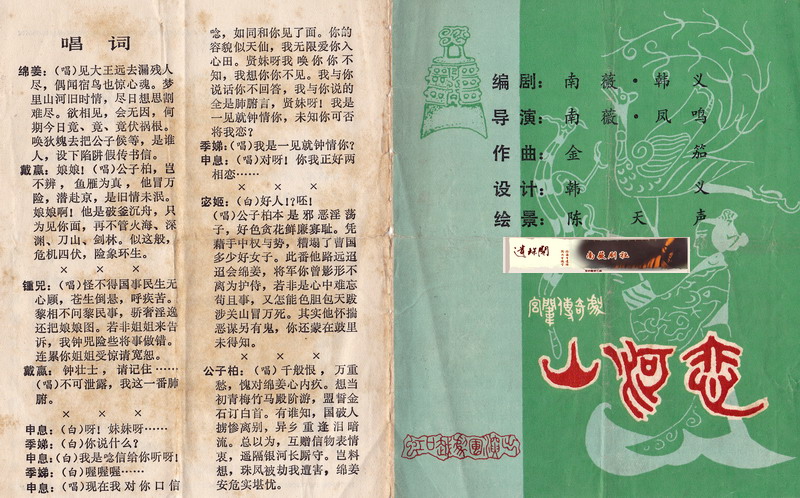 唱词
绵姜：（唱）见大王远去漏残人
尽，偶闻宿鸟也惊心魂。梦
里山河旧时情，尽日想思割
难尽。欲相见，会无因，何
期今日竟、竟、竟伏祸根。
唤狄魏去把公子候等，是谁
人，设下陷阱假传书信。
戴嬴：娘娘！（唱）公子柏，岂
不辨，鱼雁为真，他冒万
险，潜赴京，是旧情未泯。
娘娘啊！他是破釜沉舟，只
为见你面，再不管火海、深
渊、刀山、剑林。似这般，
危机四伏，险象环生。
× × ×
锺兕：（唱）怪不得国事民生无
心顾，苍生倒悬，呼疾苦。
黎相不问黎民事，骄奢淫逸
还把娘娘图。若非姐姐来告
诉，我钟兕险些将事做错。
连累你姐姐受惊请宽恕。
戴嬴：钟壮士，请记住……
（唱）不可泄露，我这一番肺
腑。
× × ×
申息：（白）呀！妹妹呀……
季娣：（白）你说什么？
申息：（白）我是唸信给你听呀！
季娣：（白）喔喔喔……
申息：（唱）现在我对你口信
唸，如同和你见了面。你的
容貌似天仙，我无限爱你入
心田。贤妹呀我唤你你不
知，我想你你不见。我与你
说话你不回答，我与你说的
全是肺腑言，贤妹呀！我是
一见就钟情你，未知你可否
将我恋？
季娣：（唱）我是一见就钟情你？
申息：（唱）对呀！你我正好两
相恋……
× × ×
宓姬：（白）好人！？呸！
（唱）公子柏本是邪恶淫荡
子，好色贪花鲜廉寡耻。凭
藉手中权与势，糟塌了曹国
多少好女子。此番他路远迢
迢会绵姜，将军你曾影形不
离为护侍，若非是心中难忘
苟且事，又怎能色胆包天跋
涉关山冒万死。其实他怀揣
恶谋另有鬼，你还蒙在鼓里
未得知。
× × ×
公子柏：（唱）千般恨，万重
愁，愧对绵姜心内疚。想当
初青梅竹马殿阶游，盟誓金
石订白首。有谁知，国破人
掳惨离别，异乡重逢泪暗
流。总以为，互赠信物表情
衷，遥隔银河长厮守。岂料
想，珠凤被劫我遭害，绵姜
安危实堪忧。
编剧：南薇·韩义
导演：南薇·凤鸣
作曲：金笳
设计：韩义
绘景：陈天声
南薇剧社
宫闱傳奇劇
山河恋
虹口越劇團演出